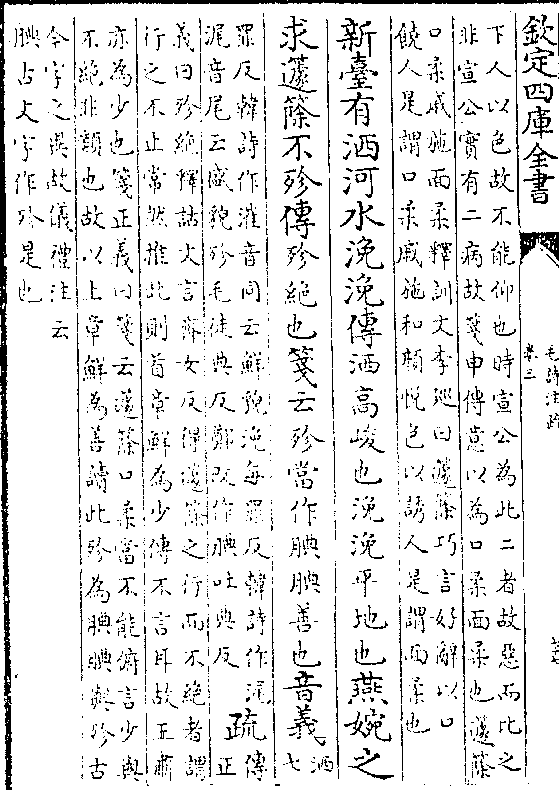 欽定四庫全書
毛詩注疏
卷三
下人以色故不能仰也時宣公為此二者故惡而比之
非宣公實有二病故箋申傳意以為口柔面柔也籧篨
口柔戚施面柔釋訓文李廵曰籧篨巧言好辭以口
饒人是謂口柔戚施和顔悅色以誘人是謂面柔也
新臺有洒河水浼浼傳洒高峻也浼浼平地也燕婉之
求籧篨不殄傳殄絕也箋云殄當作腆腆善也音義洒七
罪反韓詩作漼音同云鮮貌浼每罪反韓詩作浘
浘音尾云盛貌殄毛徒典反鄭改作腆吐典反
疏傳正
義曰殄絕釋詁文言齊女反得籧篨之行而不絕者謂
行之不止常然推此則首章鮮為少傳不言耳故王肅
亦為少也箋正義曰箋云籧篨口柔當不能俯言少與
不絕非類也故以上章鮮為善讀此殄為腆腆與殄古
今字之異故儀禮注云
腆古文字作殄是也